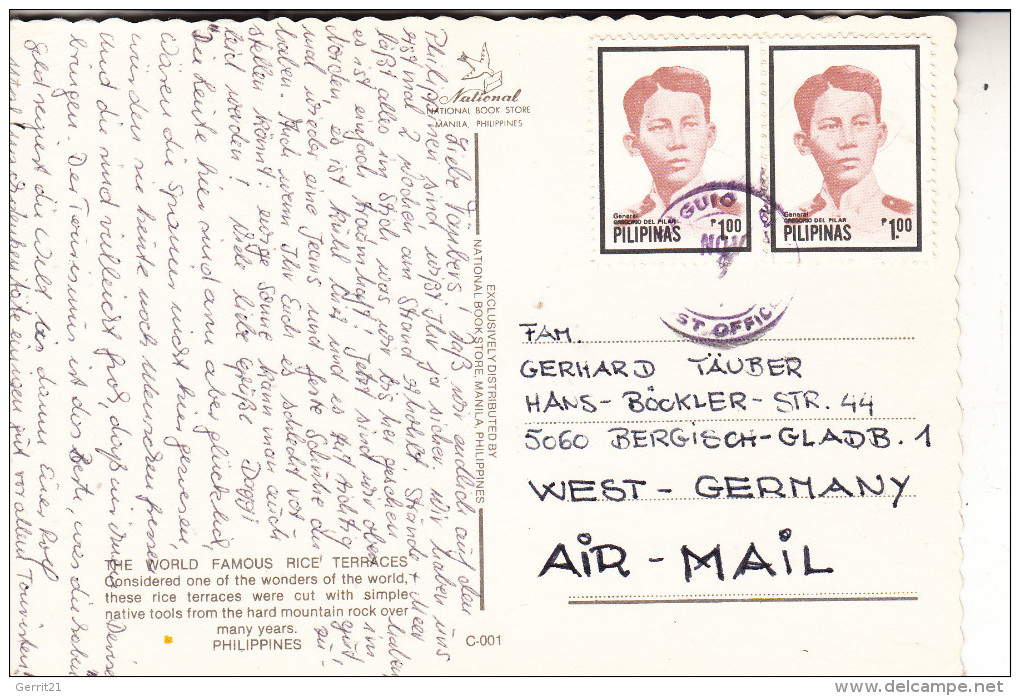 National
NATIONAL BOOK STORE
MANILA, PHILIPPINES
General
GREGORIO DEL PILAR
PILIPINAS
₱1.00
General
GREGORIO DEL PILAR
PILIPINAS
₱1.00
GUIO
NOV
ST OFFICE
FAM.
GERHARD TÄUBER
HANS-BÖCKLER-STR. 44
5060 BERGISCH-GLADB. 1
WEST-GERMANY
AIR-MAIL
EXCLUSIVELY DISTRIBUTED BY
NATIONAL BOOKSTORE, MANILA, PHILIPPINES
THE WORLD FAMOUS RICE TERRACES
Considered one of the wonders of the world,
these rice terraces were cut with simple
native tools from the hard mountain rock over
many years.
PHILIPPINES
C-001
Liebe Täubers, daß wir endlich auf den
Philippinen sind wißt Ihr ja sicher. Wir haben uns
erstmal 2 Wochen am Strand geholt. Strände + Meer
läßt alles im Stich was wir bisher gesehen haben,
es ist einfach traumhaft! Jetzt sind wir oben im
Norden, es ist kühl hier und es tut richtig gut
mal wieder eine Jeans und feste Schuhe an zu
haben. Auch wenn Ihr Euch es schlecht vor-
stellen könnt: ewige Sonne kann man auch
leid werden! Viele liebe Grüße
Die Leute hier sind arm aber glücklich,
wären die Spanier nicht hier gewesen,
würden sie heute noch Menschen fressen
Und die sind vielleicht froh,
bringen. Der Tourismus ist das Beste, was die haben
Geld regiert die Welt Rolf
gut vor allem Touristen.
Gerrit21
delcampe.net